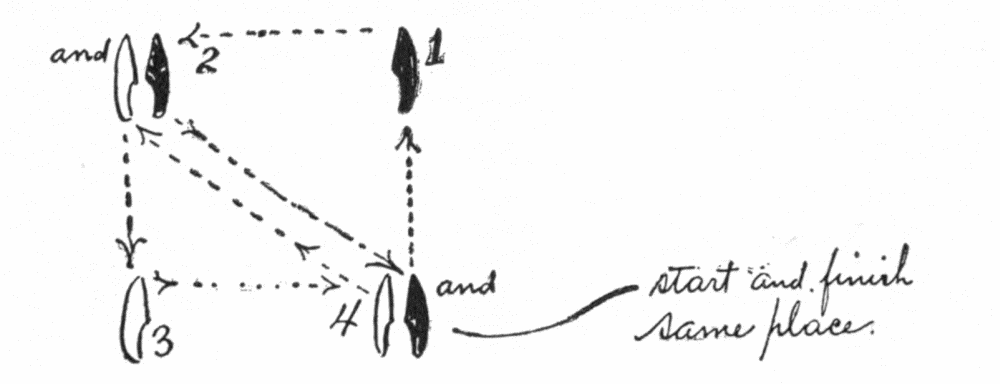 and 2 1
4 and
3
start and finish
same place.